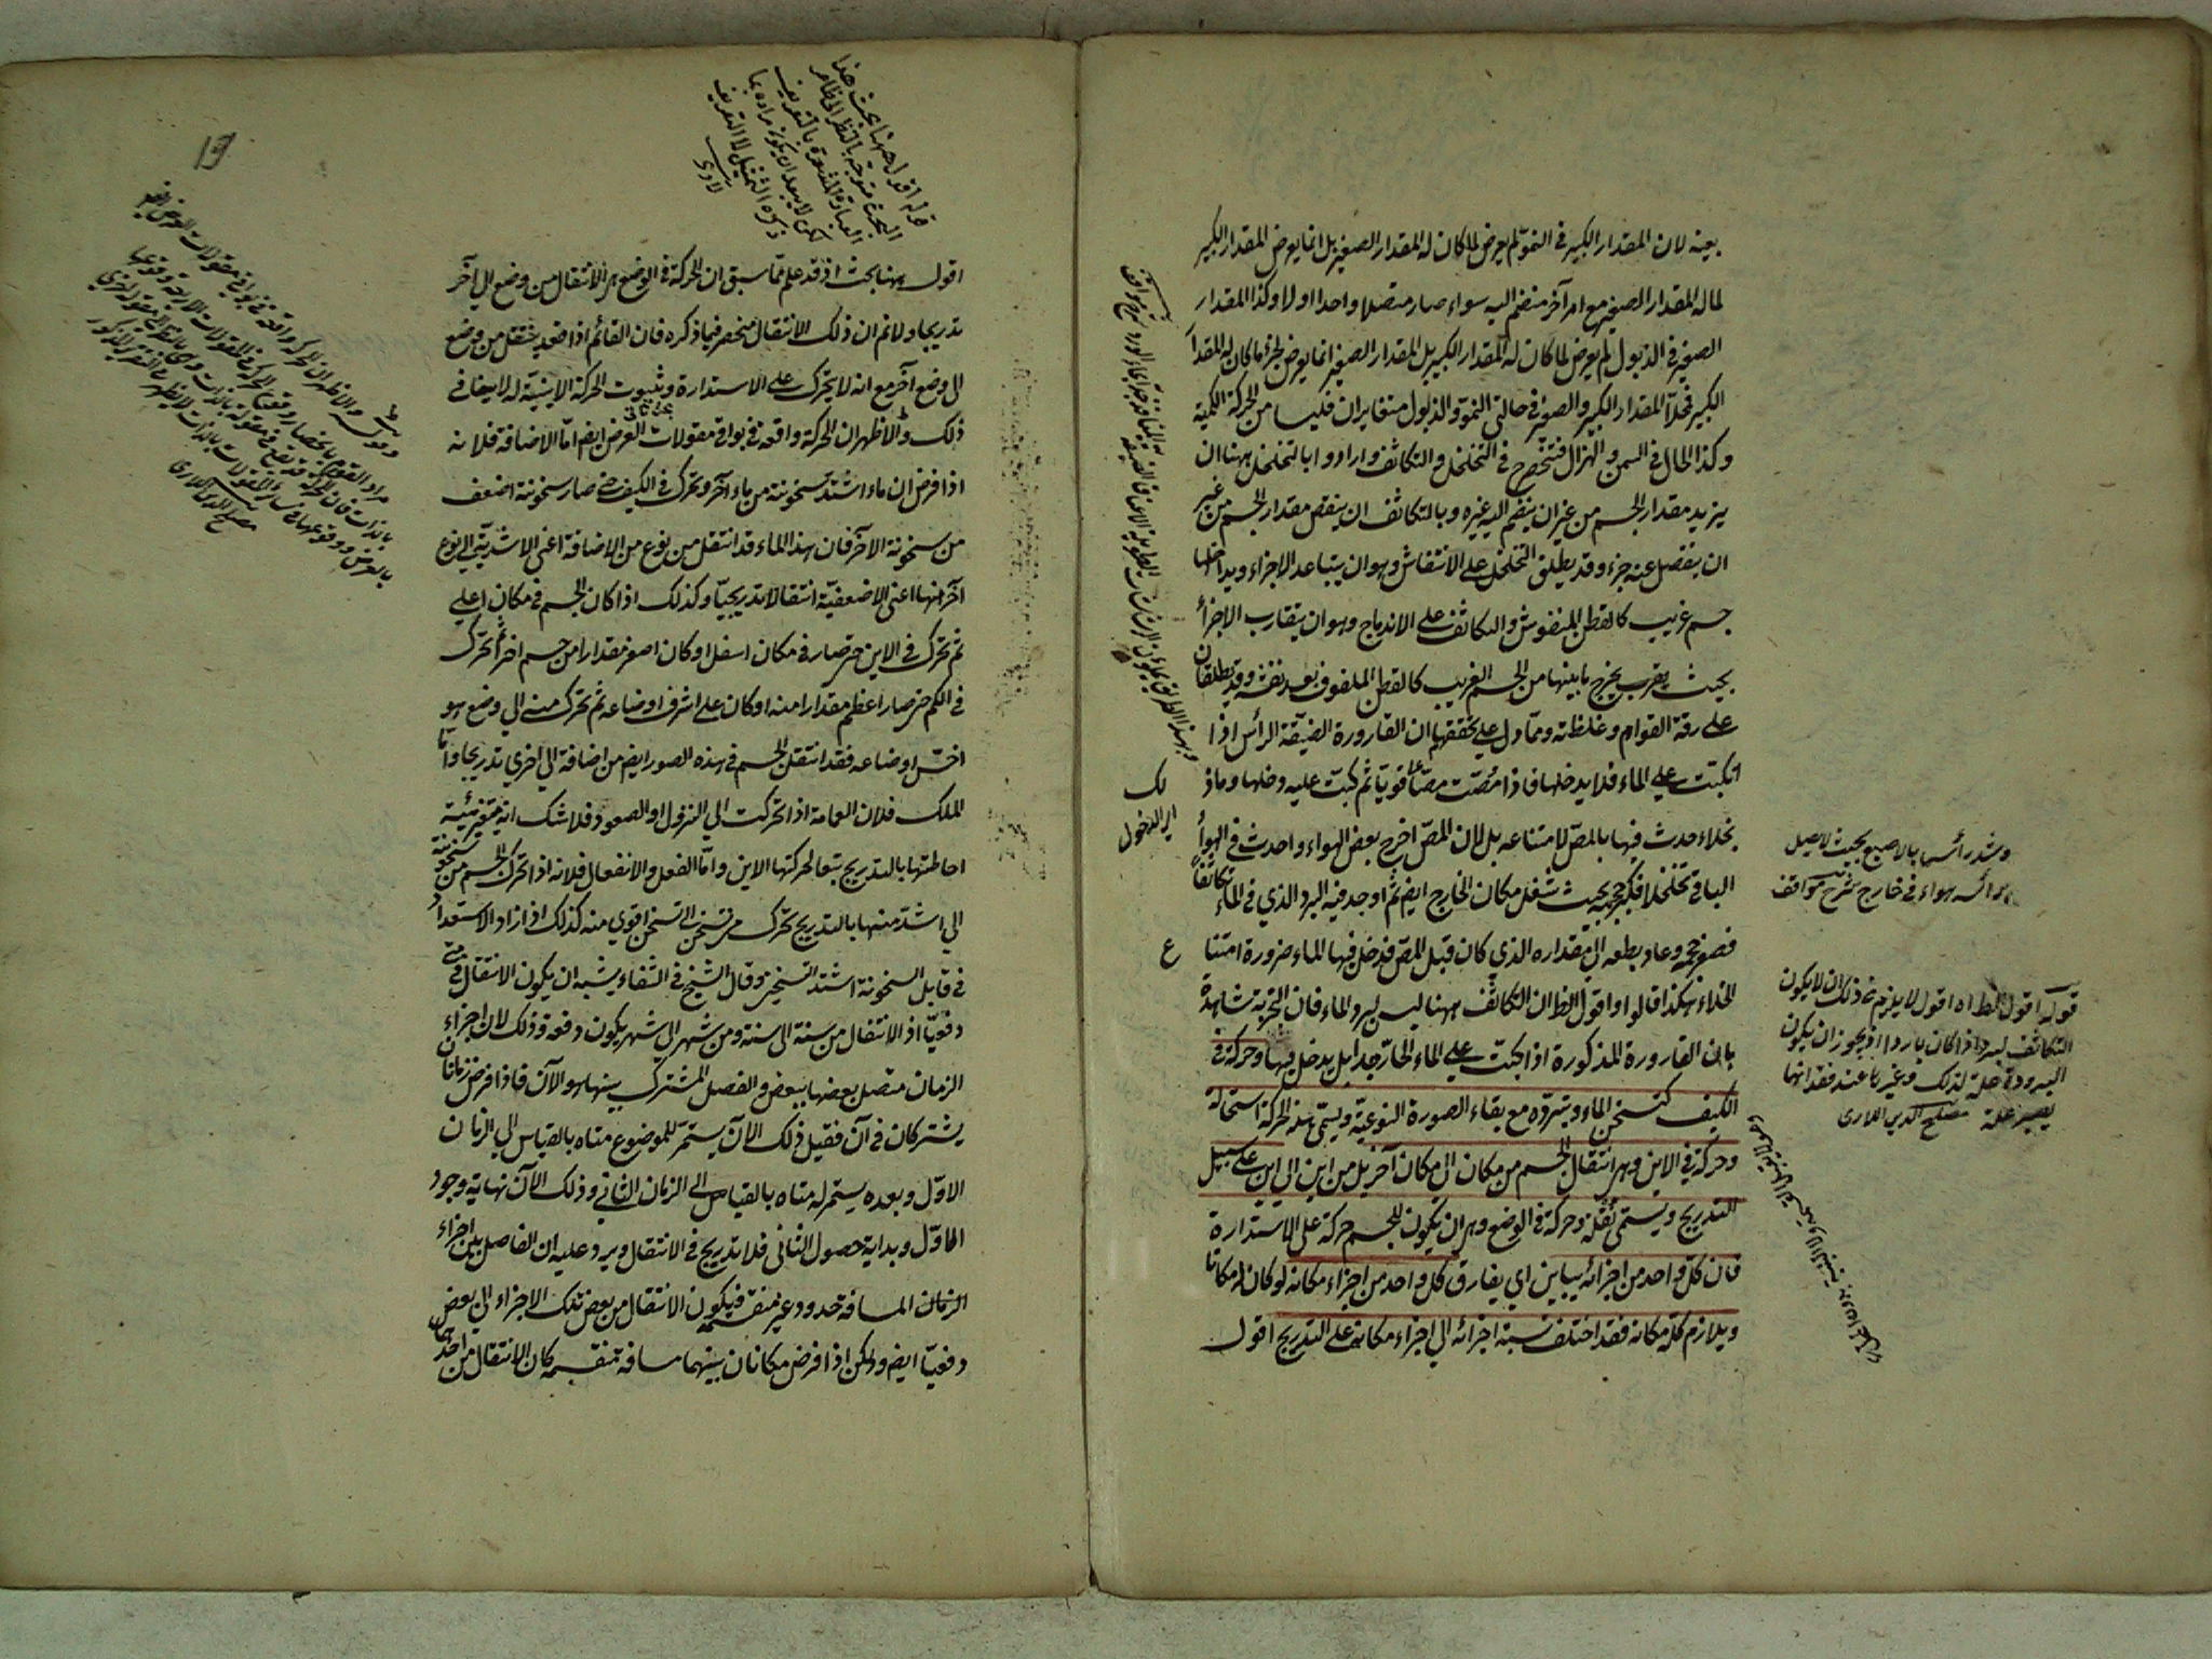 بعينه لان المقدار الكبير في النمو لم يعرض لما كان له المقدار الصغير بل انما يعرض المقدار الكبير
لما له المقدار الصغير مع امر آخر منضم اليه سواء صار متصلا واحدا اولا وكذا المقدار
الصغير في الذبول لم يعرض لما كان له المقدار الكبير بل المقدار الصغير انما يعرض لجزء ما كان له المقدار
الكبير فمحلا المقدار الكبير والصغير في حالتي النمو والذبول متغايران فليسا من الحركة الكمية
وكذا الحال في السمن والهزال فتنحصر في التخلخل والتكاثف وارادوا بالتخلخل ههنا ان
يزيد مقدار الجسم من غير ان ينضم اليه غيره وبالتكاثف ان ينقص مقدار الجسم من غير
ان ينفصل عنه جزء وقد يطلق التخلخل على الانتفاش وهو ان يتباعد الاجزاء ويداخلها
جسم غريب كالقطن المنفوش والتكاثف على الاندماج وهو ان يتقارب الاجزاء
بحيث يخرج ما بينها من الجسم الغريب كالقطن الملفوف بعد نفشه وقد يطلقان
على رقة القوام وغلظته ومما دل على تحققهما ان القارورة الضيقة الرأس اذا
انكبت على الماء فلا يدخلها فاذا مصت مصا قويا ثم كبت عليه دخلها وماذ لك
بخلاء حدث فيها بالمص لامتناعه بل لان المص اخرج بعض الهواء واحدث في الهواء
الباقي تخلخلا فكبر حجمه بحيث شغل مكان الخارج ايضا ثم اوجد فيه البرد الذي في الماء تكاثفا
فصغر حجمه وعاد بطبعه الى مقداره الذي كان قبل المص فدخل فيها الماء ضرورة امتناع
الخلاء هكذا قالوا واقول الظ ان التكاثف ههنا ليس لبرد الماء فان التجربة شاهدة
بان القارورة المذكورة اذا كبت على الماء الحار جدا بل يدخل فيها وحركة في
الكيف كتسخن الماء وتبرده مع بقاء الصورة النوعية ويسمى هذه الحركة استحالة
وحركة في الاين وهي انتقال الجسم من مكان الى مكان آخر بل من اين الى اين على سبيل
التدريج ويسمى نقلة وحركة في الوضع وهي ان يكون للجسم حركة على الاستدارة
فان كل واحد من اجزائه يباين اي يفارق كل واحد من اجزاء مكانه لو كان له مكانا
ويلازم كله مكانه فقد اختلف نسبة اجزائه الى اجزاء مكانه على التدريج اقول
وشد رأسها بالاصبع بحيث لا يصل
برأسه هواء في خارج شرح مواقف
قوله اقول الظ اه اقول لا يلزم من ذلك ان لا يكون
التكاثف لبرد اذا كان باردا اذ يجوز ان يكون
البرودة علة لذلك وغيرها عند فقدانها
يصير علة مصلح الدين اللارى
اى الدخول
قوله اقول ههنا بحث هذا
البحث متوجه بالنظر الى ظاهر
العبارة المشعرة بالتعريف
لكن لا يبعد ان يكون مراده بما
ذكره التمثيل لا التعريف
لارى
19
اقول ههنا بحث اذ قد علم مما سبق ان الحركة في الوضع هي الانتقال من وضع الى آخر
تدريجا ولا نم ان ذلك الانتقال منحصر فيما ذكره فان القائم اذا قعد ينتقل من وضع
الى وضع آخر مع انه لا يتحرك على الاستدارة وثبوت الحركة الاينية له لا ينافي
ذلك والاظهر ان الحركة واقعة في بواقي مقولات العرض ايض اما الاضافة فلانه
اذا فرض ان ماء اشتد سخونته من ماء آخر وتحرك في الكيف حتى صار سخونته اضعف
من سخونة الآخر فان هذا الماء قد انتقل من نوع من الاضافة اعنى الاشدية الى نوع
آخر منها اعنى الاضعفية انتقالا تدريجيا وكذلك اذا كان الجسم في مكان اعلى
ثم تحرك في الاين حتى صار في مكان اسفل او كان اصغر مقدارا من جسم آخر ثم تحرك
في الكم حتى صار اعظم مقدارا منه او كان على اشرف اوضاعه ثم تحرك منه الى وضع هو
اخس اوضاعه فقد انتقل الجسم في هذه الصور ايض من اضافة الى اخرى تدريجا واما
الملك فلان العمامة اذا تحركت الى النزول او الصعود فلا شك انه يتغير هيئة
احاطتها بالتدريج تبعا لحركتها الاين واما الفعل والانفعال فلانه اذا تحرك الجسم من سخونة
الى اشد منها بالتدريج تحرك من تسخن الى تسخن اقوى منه كذلك اذا زاد الاستعداد
في قابل السخونة اشتد التسخين وقال الشيخ في الشفاء يشبه ان يكون الانتقال في متى
دفعيا اذ الانتقال من سنة الى سنة ومن شهر الى شهر يكون دفعة وذلك لان اجزاء
الزمان متصل بعضها ببعض والفصل المشترك بينها هو الآن فاذا فرض زمانان
يشتركان في آن فقبل ذلك الآن يستمر للموضوع متاه بالقياس الى الزمان
الاول وبعده يستمر له متاه بالقياس الى الزمان الثاني وذلك الآن نهاية وجود
الاول وبداية حصول الثاني فلا تدريج في الانتقال ويرد عليه ان الفاصل بين اجزاء
الزمان المسافة حدود غير منقسمة فيكون الانتقال من بعض تلك الاجزاء الى بعض
دفعيا ايض ولكن اذا فرض مكانان بينهما مسافة منقسمة كان الانتقال من احدهما